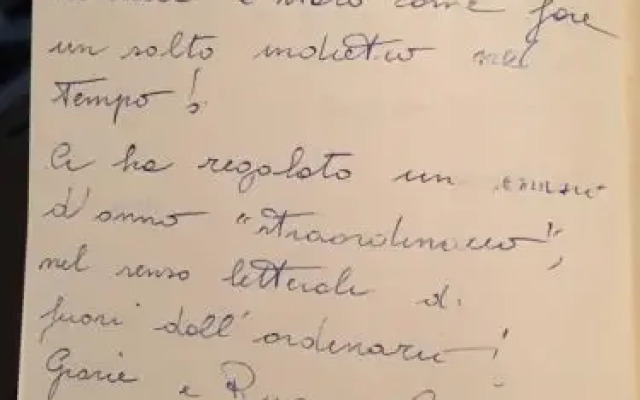 è stato come fare
un salto indietro nel
tempo!
Ci ha regalato un
d'anno "straordinario",
nel senso letterale di
fuori dall'ordinario!
Grazie e